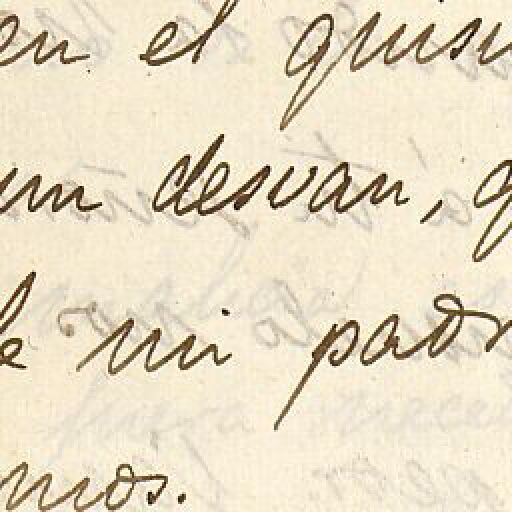 en el quisi
un desvan, q
le mi padr
mos.